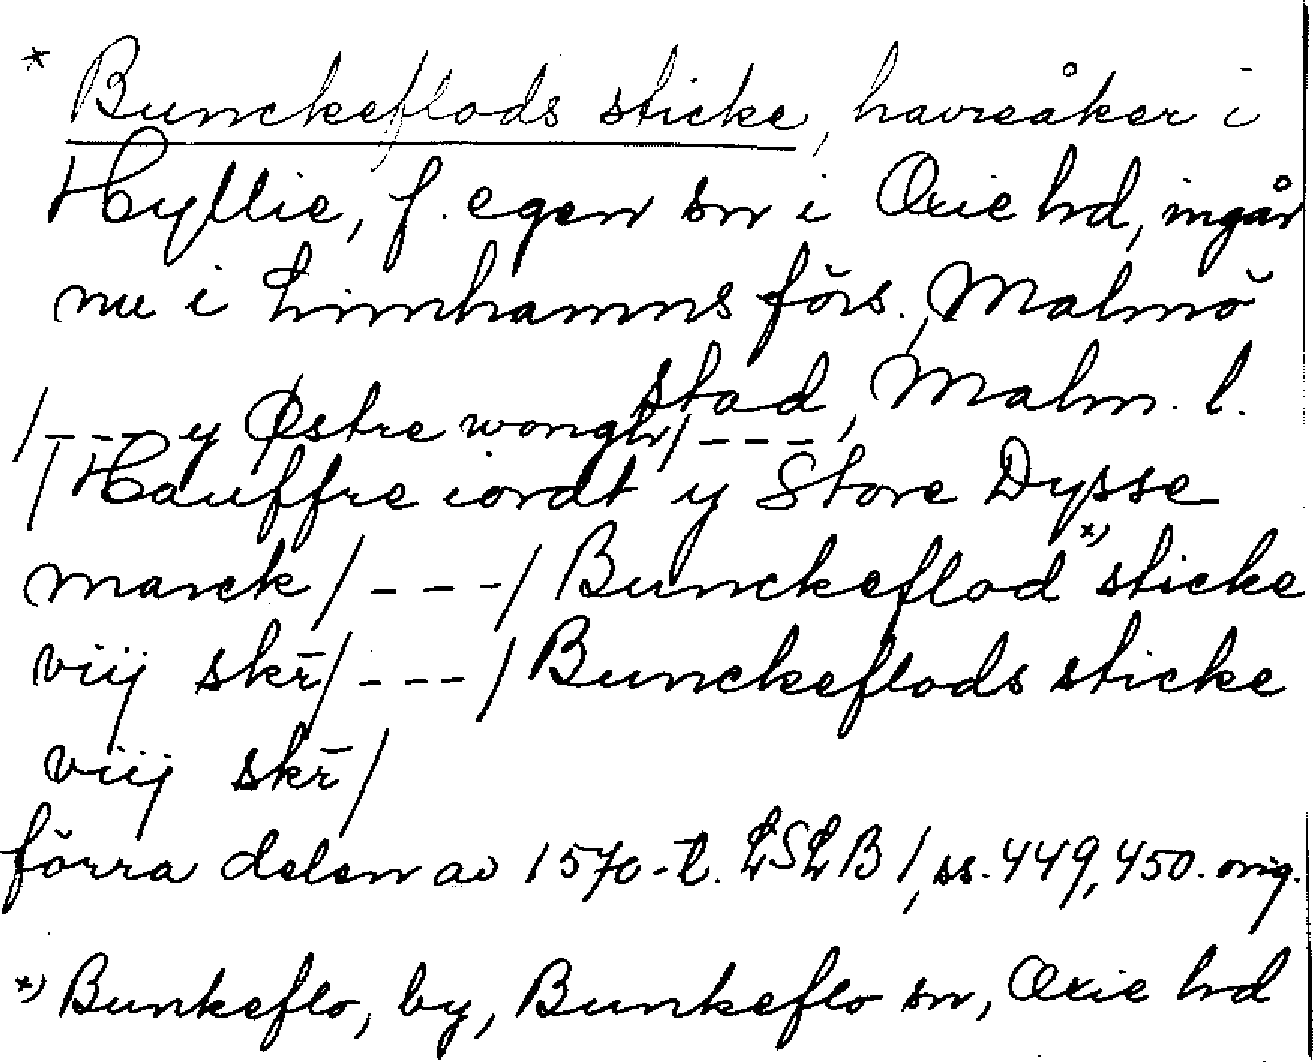 * Bunckeflods sticke, havreåker i
Hyllie, f. egen sn i Oxie hd, ingår
nu i Limhamns förs., Malmö
stad, Malm. l.
/---y Østre wongh/---,
/Hauffre iordt y Store Dysse
marck/---/Bunckeflod*) sticke
viij skr̄/---/Bunckeflods sticke
viij skr̄/
förra delen av 1570-t. LSLB 1, ss. 449, 450. orig.
*) Bunkeflo, by, Bunkeflo sn, Oxie hd